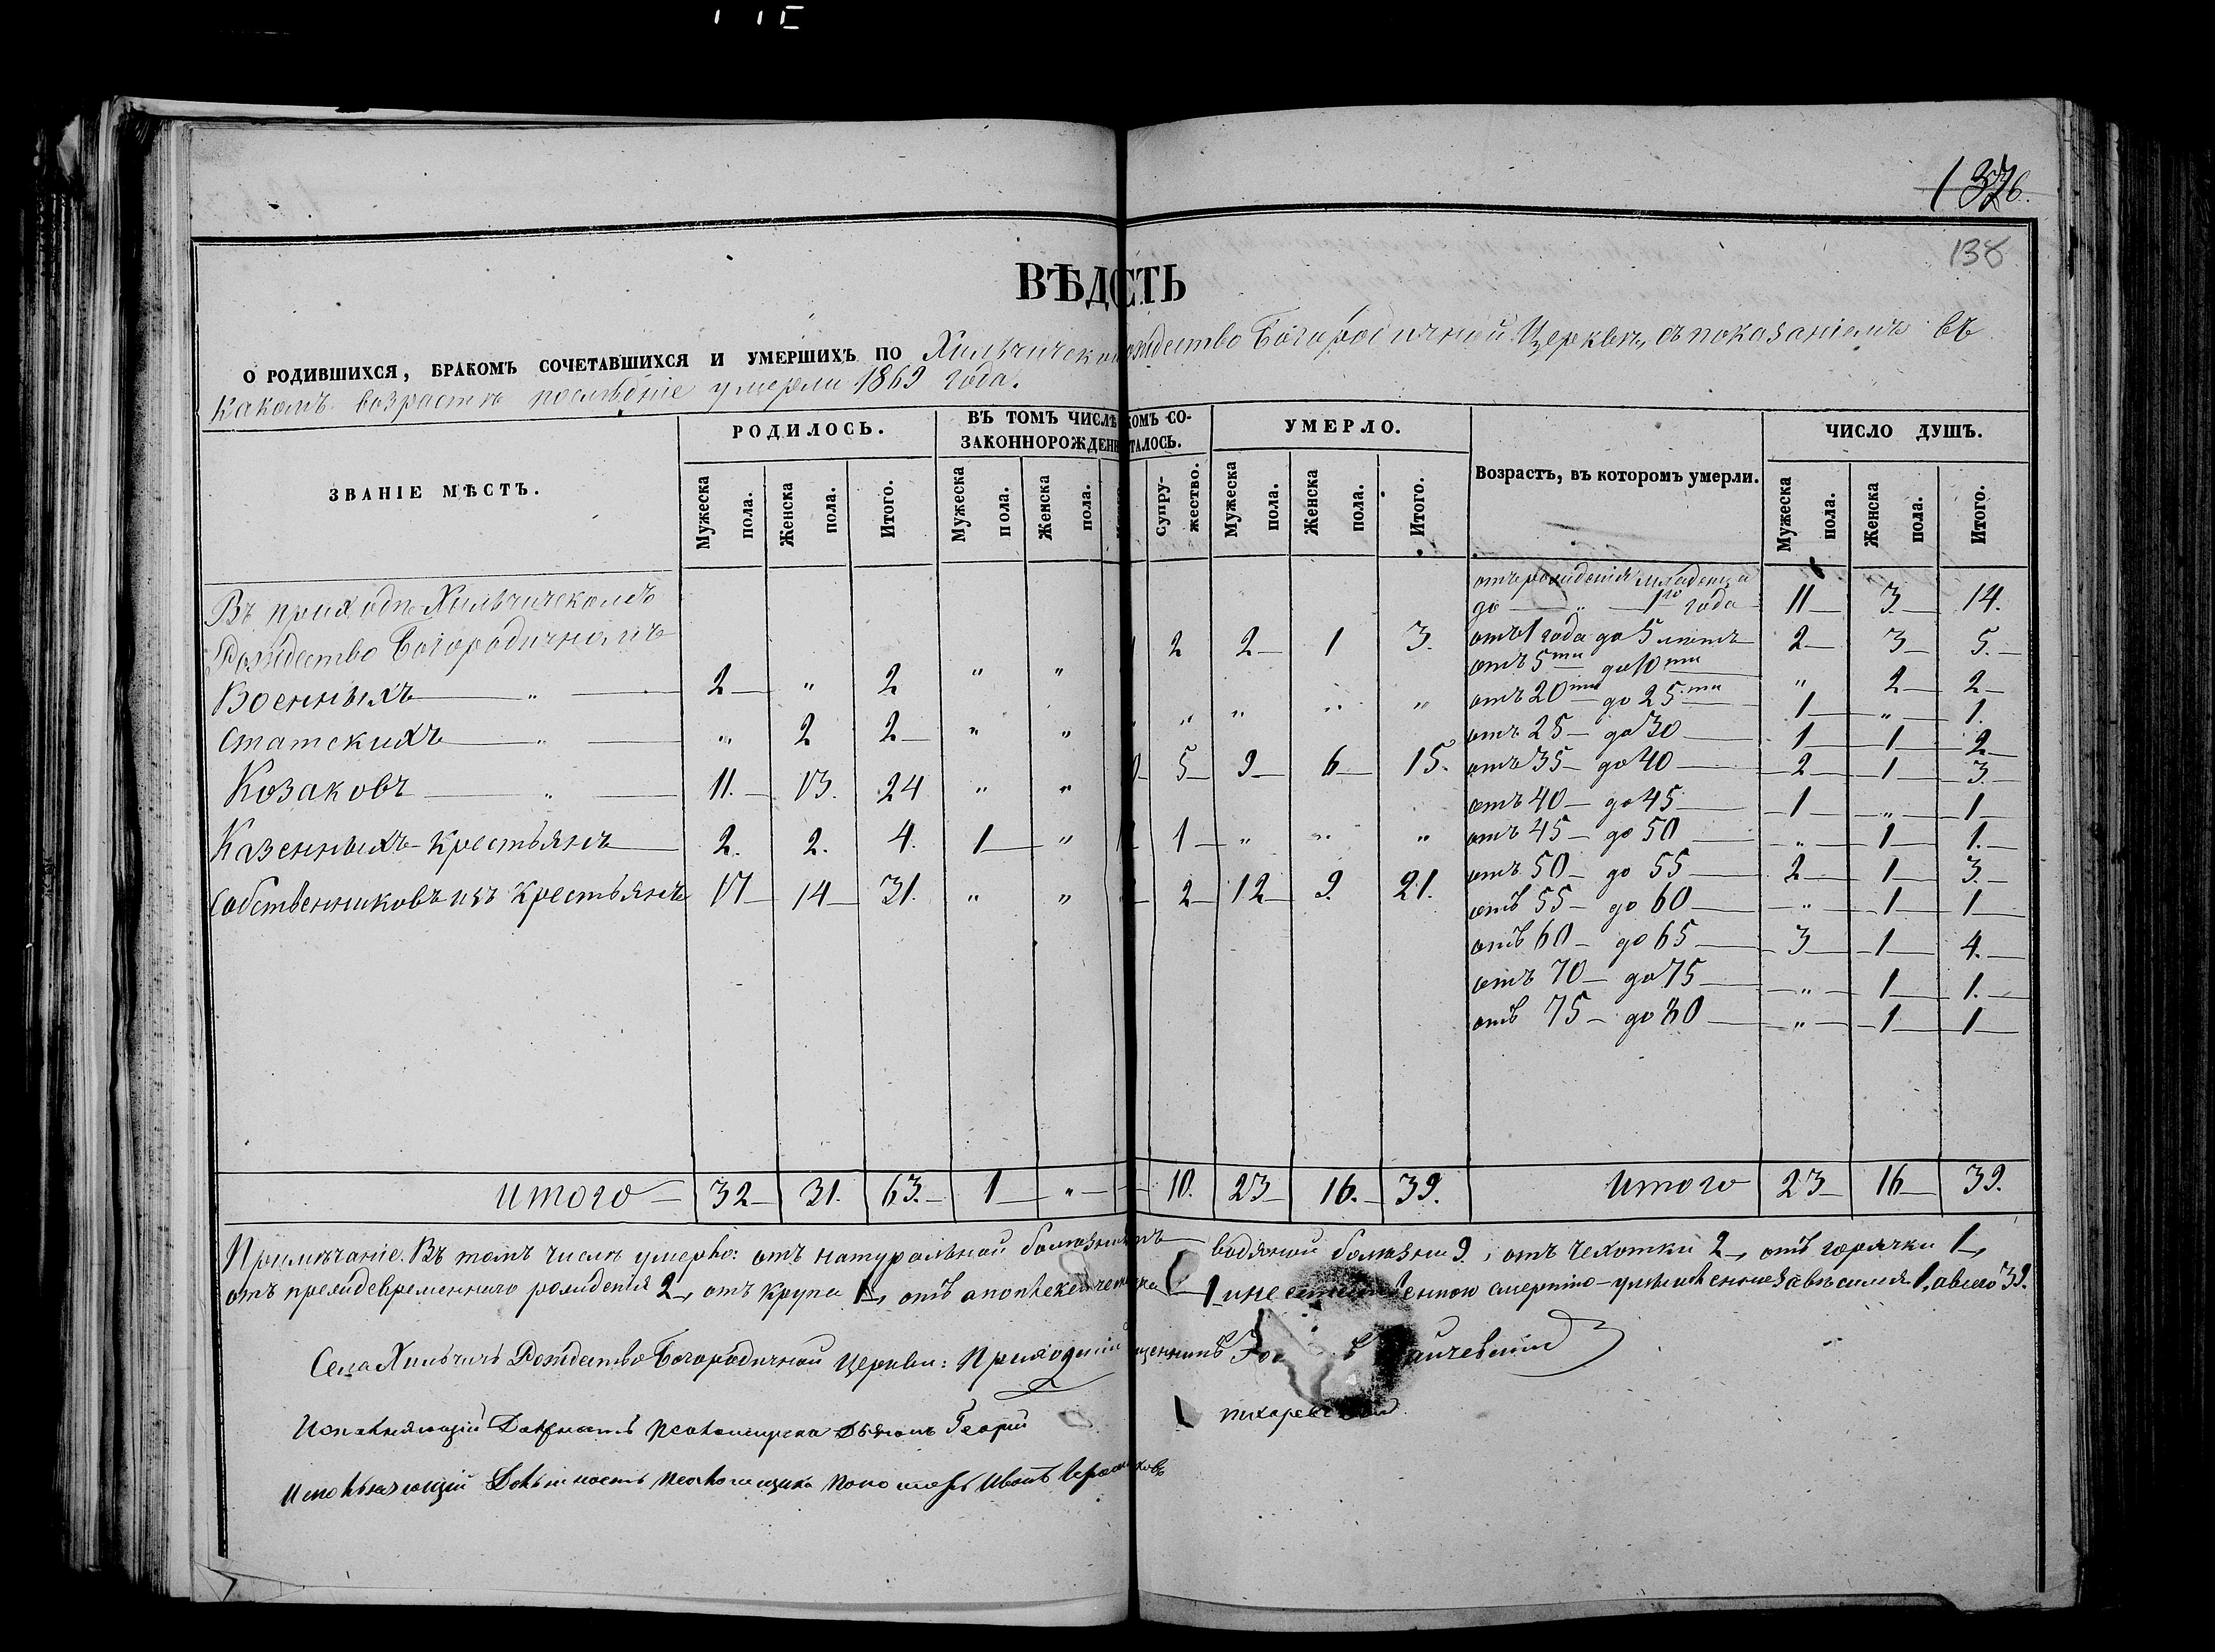 138
ВѢДСТЬ
О РОДИВШИХСЯ, БРАКОМЪ СОЧЕТАВШИХСЯ И УМЕРШИХЪ ПО Хильчичск ождество Богородичной Церкви, съ показаніемъ въ
какомъ возрастѣ послѣдніе умерли 1869 года.
ЗВАНІЕ МѢСТЪ. РОДИЛОСЬ. ВЪ ТОМЪ ЧИСЛѢ ЗАКОННОРОЖДЕН КОМЪ СО- ТАЛОСЬ. УМЕРЛО. Возрастъ, въ которомъ умерли. ЧИСЛО ДУШЪ.
Мужеска пола. Женска пола. Итого. Мужеска пола. Женска пола. Супру- жество. Мужеска пола. Женска пола. Итого. Мужеска пола. Женска пола. Итого.
Въ приходѣ Хильчичскомъ
Рождество Богородичномъ
Военныхъ — „ — 2 — „ 2 „ „ 2 2 — 1 3.
Статскихъ — „ — „ 2 2 — „ „ „ „ „ „
Козаковъ — „ — 11. — 13. 24 „ „ 5 — 9 — 6 — 15.
Казенныхъ Крестьянъ — 2. 2. 4. 1 — „ 1 — „ „ „
Собственниковъ изъ Крестьянъ 17 — 14 — 31. „ „ 2 — 12 — 9. 21.
отъ рожденія младенца
до — „ — 1го года — 11 — 3 — 14.
отъ 1 года до 5 лѣтъ 2 — 3 — 5. —
отъ 5ти до 10ти „ 2 — 2 —
отъ 20ти до 25ти 1 — „ — 1.
отъ 25 — до 30 — 1 — 1 — 2. —
отъ 35 — до 40 — 2 — 1 — 3. —
отъ 40 — до 45 — 1 — „ — 1 —
отъ 45 — до 50 — „ — 1 — 1. —
отъ 50 — до 55 — 2 — 1 — 3. —
отъ 55 — до 60 — „ — 1 — 1 —
отъ 60 — до 65 — 3 — 1 — 4. —
отъ 70 — до 75 — „ — 1 — 1. —
отъ 75 — до 80 — „ — 1 — 1 —
итого — 32 — 31. 63. — 1 — „ — 10. 23 — 16. — 39. Итого 23 — 16 — 39.
Примѣчаніе. Въ томъ числѣ умерло: отъ натуральной болѣзни водяной болѣзни 9, отъ чехотки 2 —, отъ горячки 1 —,
отъ преждевременнаго рожденія 2 —, отъ крупа 1 —, отъ 1 смертію 1, а всего 39.
Села Хильчичъ Рождество Богородичной Церкви: Приходскій
Исполняющій Должность Псаломщика Дьяконъ Георгій
Исполняющій Должность Псаломщика Пономарь Иванъ